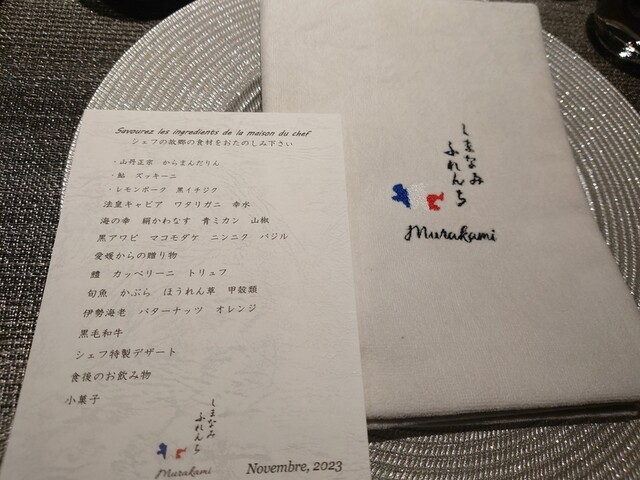 Savourez les ingredients de la maison du chef
シェフの故郷の食材をおたのしみ下さい
・山丹正宗 からまんだりん
・鮎 ズッキーニ
・レモンポーク 黒イチジク
法皇キャビア ワタリガニ 幸水
海の幸 絹かわなす 青ミカン 山椒
黒アワビ マコモダケ ニンニク バジル
愛媛からの贈り物
鱧 カッペリーニ トリュフ
旬魚 かぶら ほうれん草 甲殻類
伊勢海老 バターナッツ オレンジ
黒毛和牛
シェフ特製デザート
食後のお飲み物
小菓子
しまなみ
ふれんち
Murakami
Novembre, 2023
しまなみ
ふれんち
Murakami